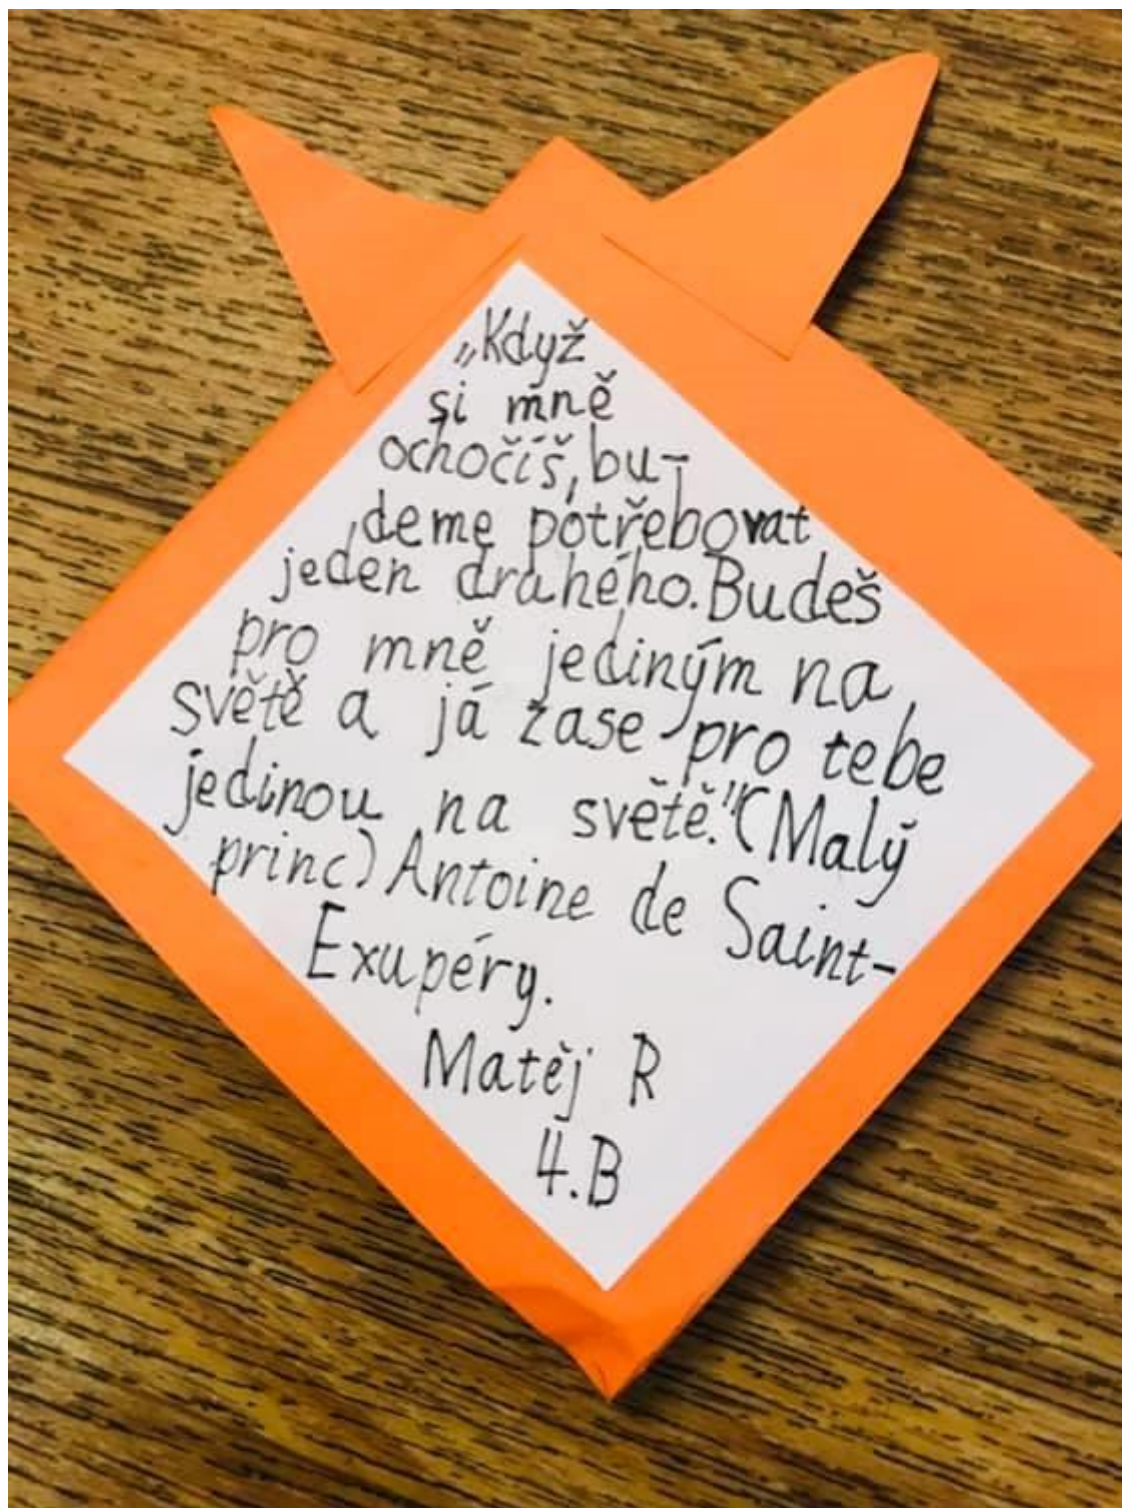 „Když
si mně
ochočíš, bu-
deme potřebovat
jeden drahého. Budeš
pro mně jediným na
světě a já zase pro tebe
jedinou na světě." (Malý
princ) Antoine de Saint-
Exupéry.
Matěj R
4.B